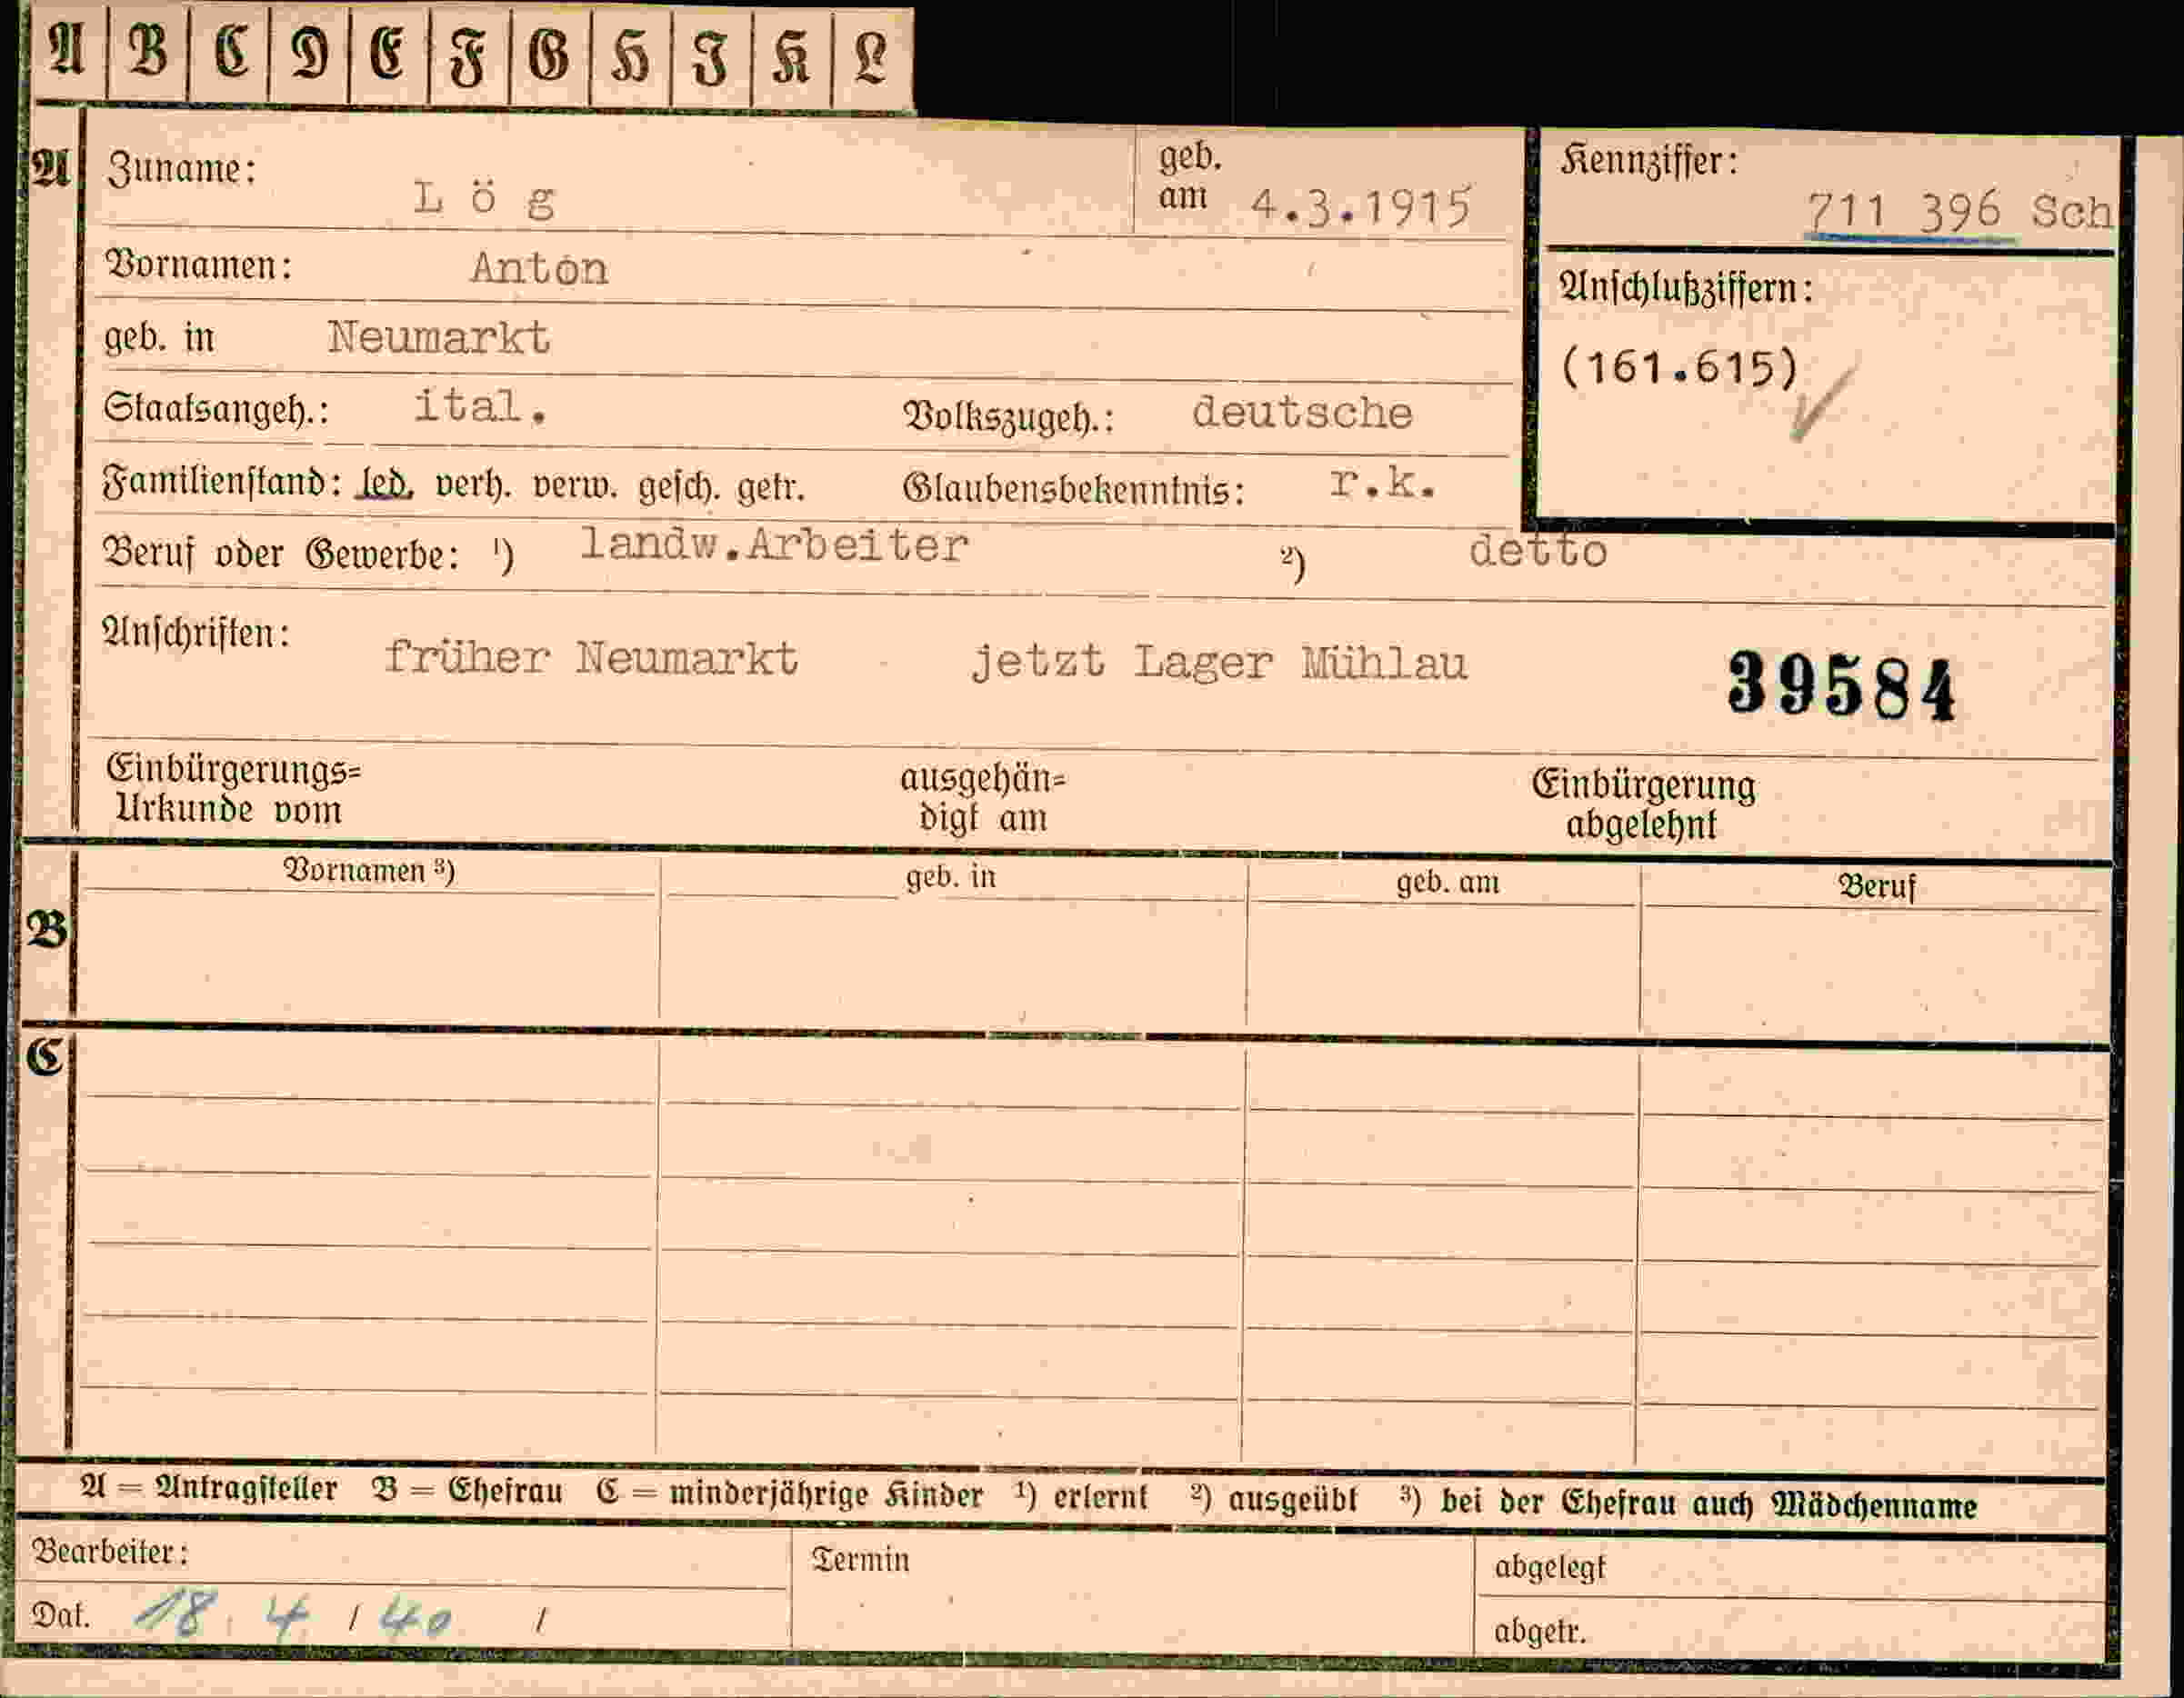 A B C D E F G H I K L
A Zuname: Lög geb. am 4.3.1915 Kennziffer: 711 396 Sch
Vornamen: Anton
Anschlußziffern:
geb. in Neumarkt
(161.615)
Staatsangeh.: ital. Volkszugeh.: deutsche
Familienstand: led. verh. verw. gesch. getr. Glaubensbekenntnis: r.k.
Beruf oder Gewerbe: ¹) landw.Arbeiter ²) detto
Anschriften: früher Neumarkt jetzt Lager Mühlau 39584
Einbürgerungs= ausgehän= Einbürgerung
Urkunde vom digt am abgelehnt
Vornamen ³) geb. in geb. am Beruf
B
C
A = Antragsteller B = Ehefrau C = minderjährige Kinder ¹) erlernt ²) ausgeübt ³) bei der Ehefrau auch Mädchenname
Bearbeiter: Termin abgelegt
Dat. 18. 4. / 40 / abgetr.